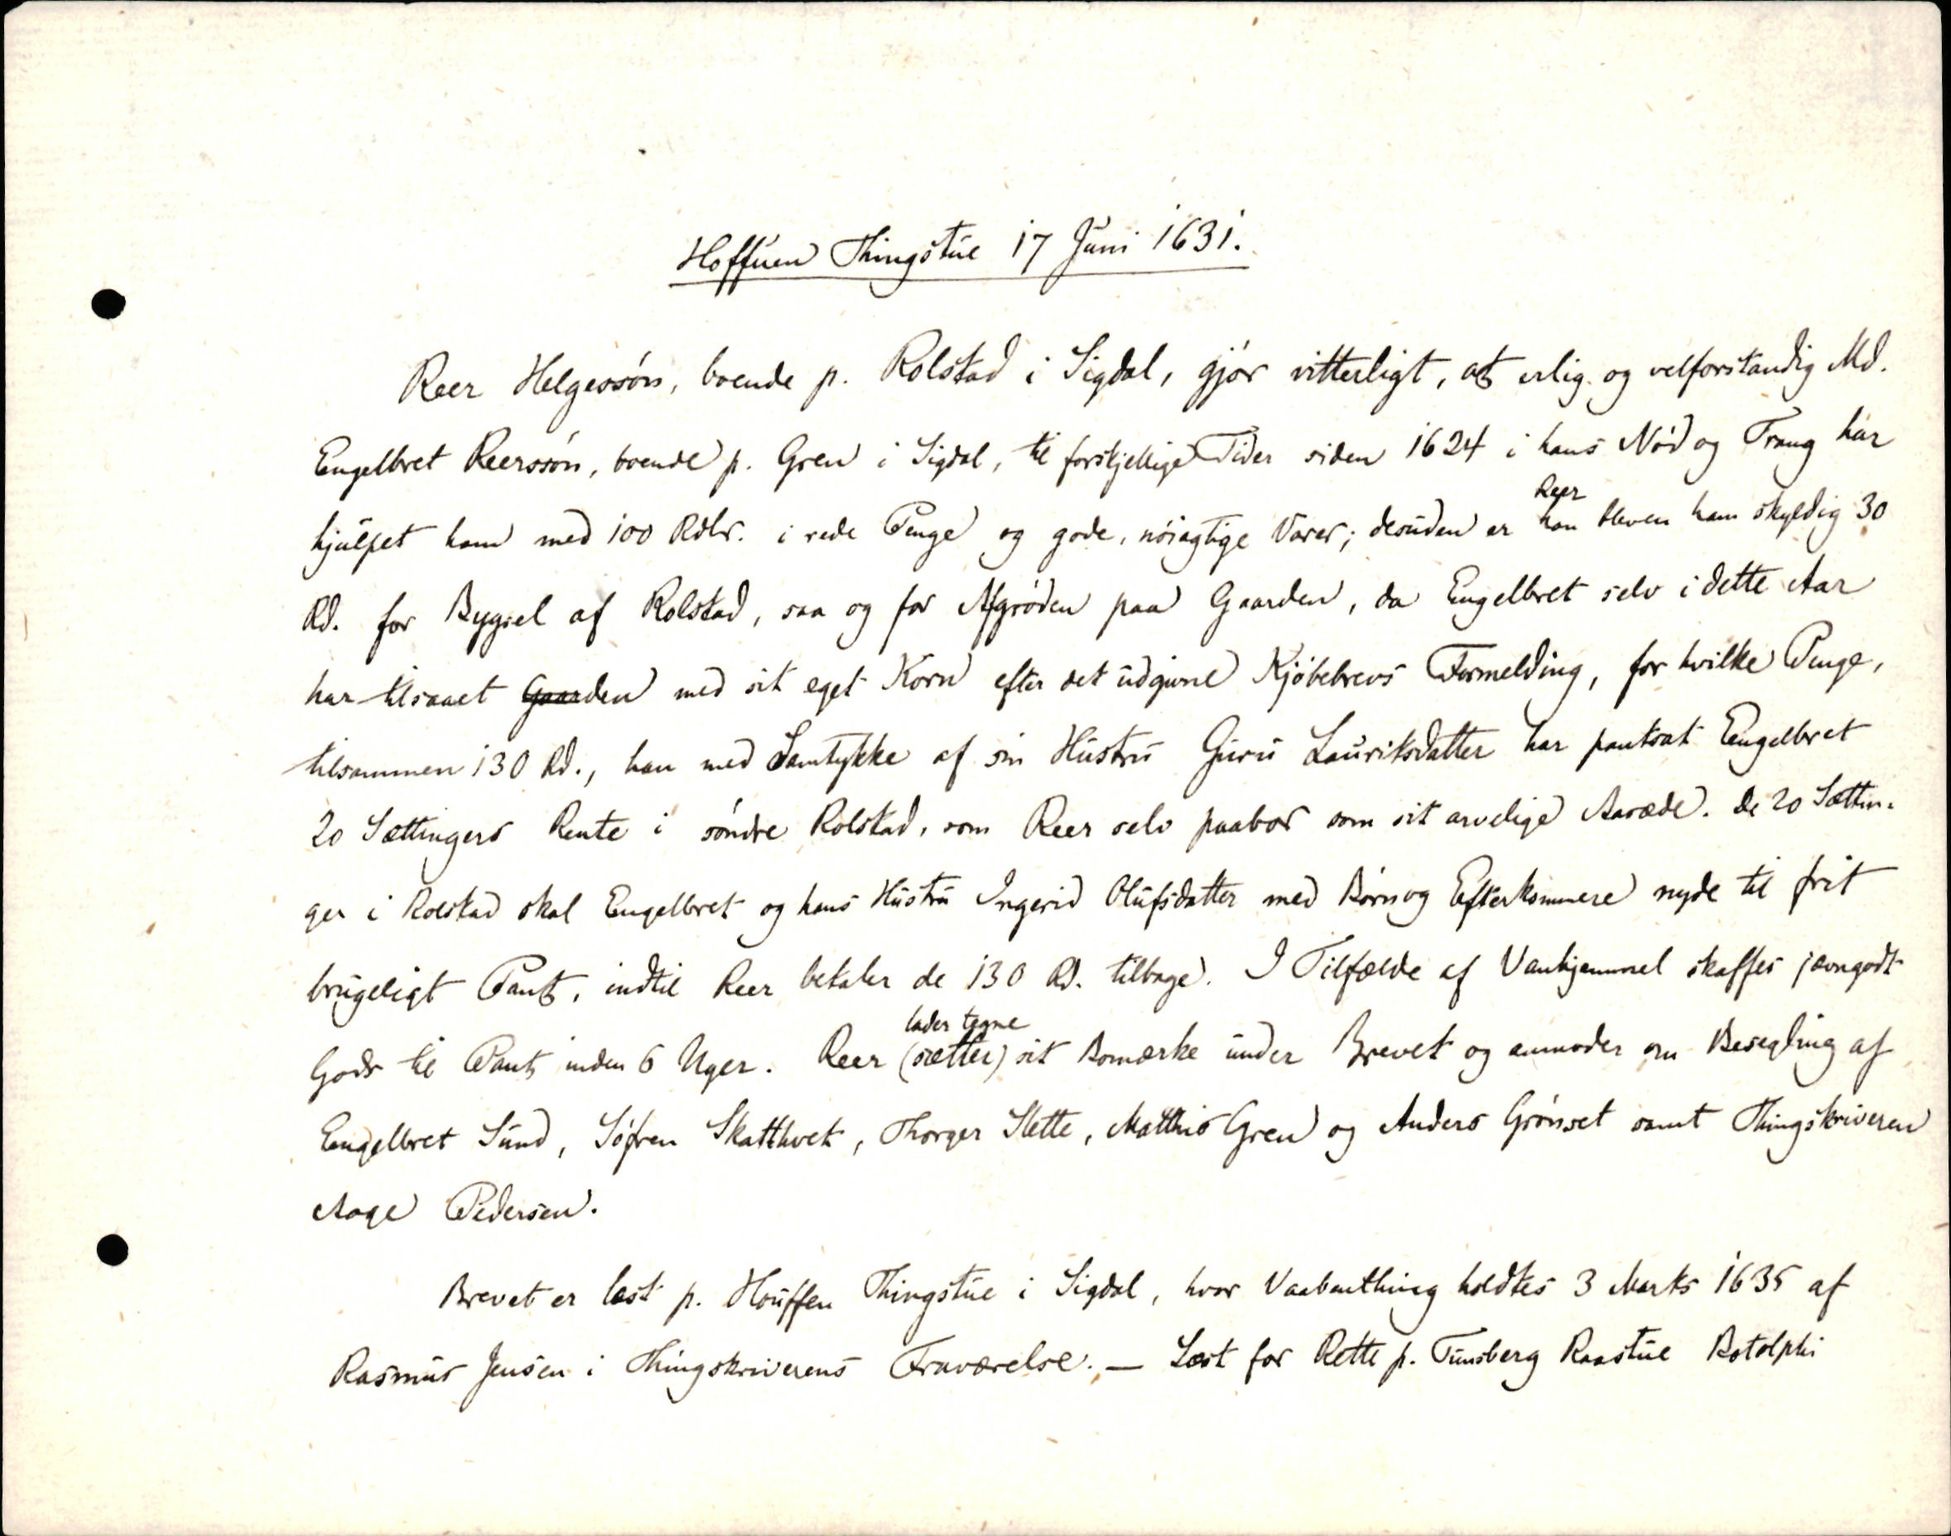 Hoffuen Thingstue 17 Juni 1631.
Reer Helgessøn, boende p. Rolstad i Sigdal, gjør vitterligt, at erlig og velforstandig Md.
Engelbret Reerssøn, boende p. Gren i Sigdal, til forskjellige Tider siden 1624 i hans Nød og Trang har
hjulpet ham med 100 Rdlr. i rede Penge og gode, nøiagtige Varer; desuden er han bleven ham skyldig 30
Reer
Rd. for Bygsel af Rolstad, saa og for Afgrøden paa Gaarden, da Engelbret selv i dette Aar
har tilsaaet Gaarden med sit eget Korn efter det udgivne Kjøbebrevs Formelding, for hvilke Penge,
tilsammen 130 Rd., han med Samtykke af sin Hustru Guru Lauriksdatter har pantsat Engelbret
20 Sættingers Rente i søndre Rolstad, som Reer selv paabor som sit arvelige Aasæde. De 20 Sættin-
ger i Rolstad skal Engelbret og hans Hustru Ingerid Olufsdatter med Børn og Efterkommere nyde til frit
brugeligt Pant, indtil Reer betaler de 130 Rd. tilbage. I Tilfælde af Vanhjemmel skaffes jævngodt
Gods til Pant inden 6 Uger. Reer (sætter) sit Bomærke under Brevet og anmoder om Besegling af
lader tegne
Engelbret Sund, Søfren Skatthvet, Thorger Slette, Matthis Gren og Anders Grønset samt Thingskriveren
Aage Pedersen.
Brevet er læst p. Houffen Thingstue i Sigdal, hvor Vaabenthing holdtes 3 Marts 1635 af
Rasmus Jensen i Thingskriverens Fraværelse. — Læst for Rette p. Tunsberg Raastue Botolphi